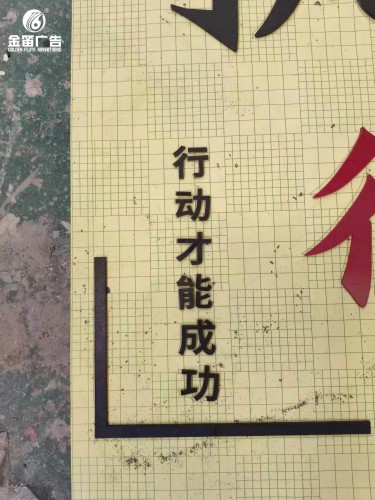 金笛广告
GOLDEN FLUTE ADVERTISING
行动才能成功